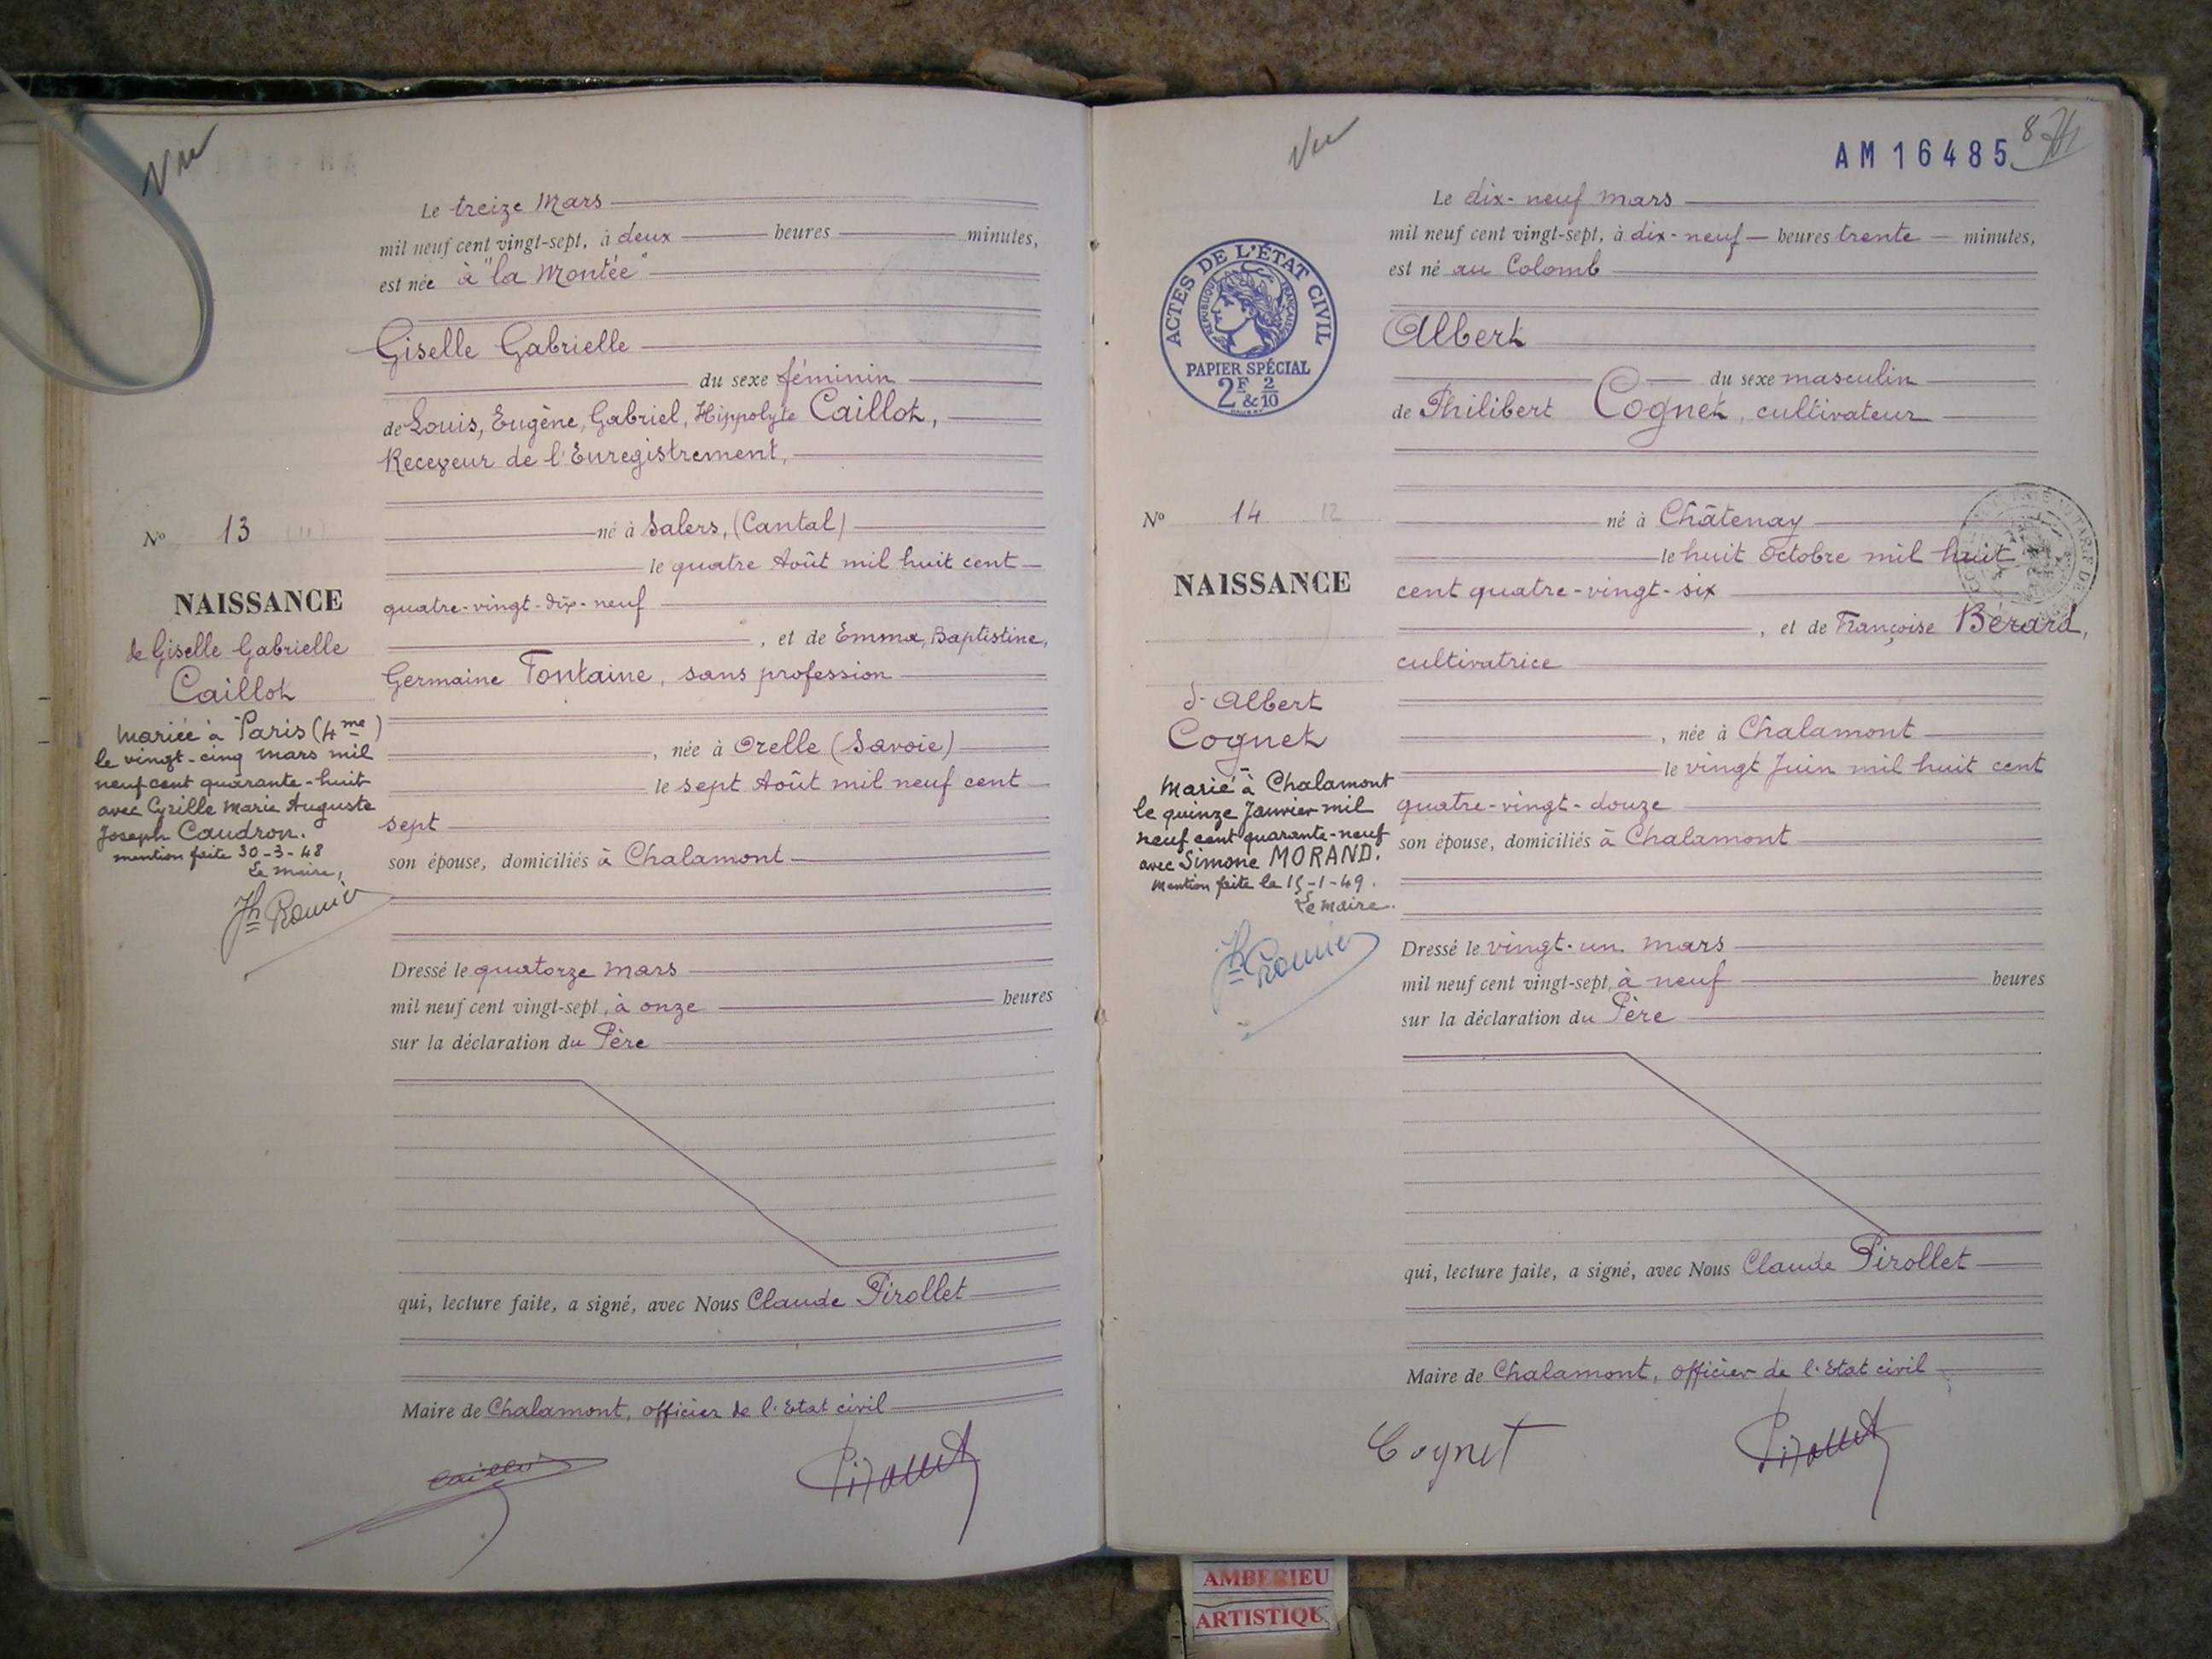 Vu
Le treize Mars
mil neuf cent vingt-sept, à deux heures minutes,
est née à "la Montée"
Giselle Gabrielle
du sexe féminin
de Louis, Eugène, Gabriel, Hippolyte Caillot,
Receveur de l'Enregistrement,
né à Salers, (Cantal)
le quatre Août mil huit cent
quatre-vingt-dix-neuf
, et de Emma, Baptistine,
Germaine Fontaine, sans profession
, née à Orelle (Savoie)
le sept Août mil neuf cent
sept
son épouse, domiciliés à Chalamont
Dressé le quatorze mars
mil neuf cent vingt-sept, à onze heures
sur la déclaration du Père
qui, lecture faite, a signé, avec Nous Claude Pirollet
Maire de Chalamont, officier de l'Etat civil
No 13
NAISSANCE
de Giselle Gabrielle
Caillot
Mariée à Paris (4me)
le vingt-cinq mars mil
neuf cent quarante-huit
avec Cyrille Marie Auguste
Joseph Caudron.
mention faite 30-3-48
Le Maire,
Vu
AM 16485
Le dix-neuf mars
mil neuf cent vingt-sept, à dix-neuf heures trente minutes,
est né au Colomb
Albert
du sexe masculin
de Philibert Cognet, cultivateur
né à Châtenay
le huit Octobre mil huit
cent quatre-vingt-six
, et de Françoise Bérard,
cultivatrice
, née à Chalamont
le vingt Juin mil huit cent
quatre-vingt-douze
son épouse, domiciliés à Chalamont
Dressé le vingt-un mars
mil neuf cent vingt-sept, à neuf heures
sur la déclaration du Père
qui, lecture faite, a signé, avec Nous Claude Pirollet
Maire de Chalamont, officier de l'Etat civil
Cognet
ACTES DE L'ÉTAT CIVIL
RÉPUBLIQUE FRANÇAISE
PAPIER SPÉCIAL
2F & 2/10
No 14 12
NAISSANCE
d'Albert
Cognet
Marié à Chalamont
le quinze Janvier mil
neuf cent quarante-neuf
avec Simone MORAND.
Mention faite le 15-1-49.
Le Maire.
AMBERIEU
ARTISTIQU